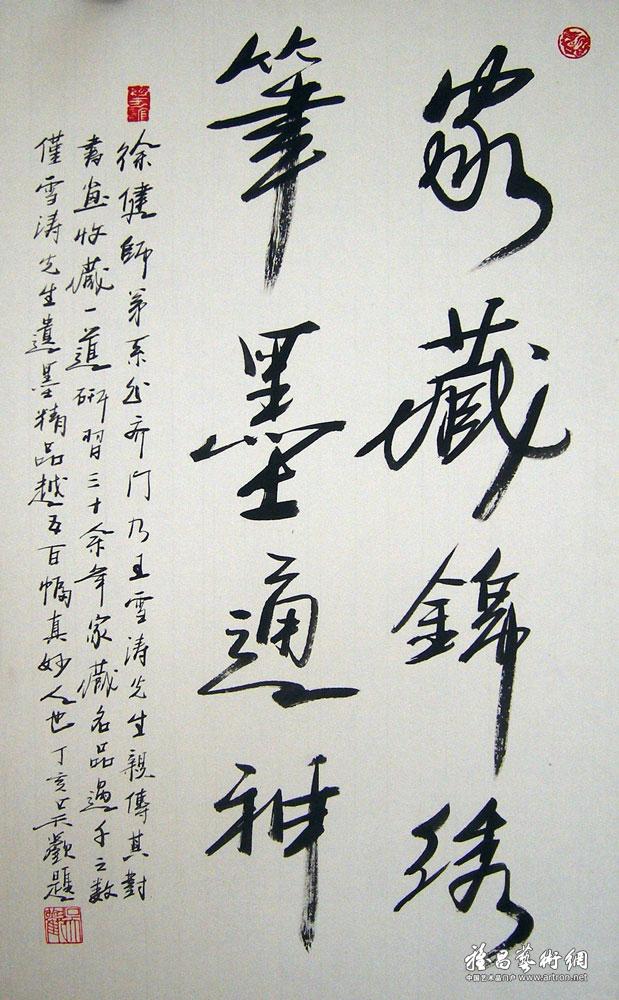 家藏錦绣
筆墨通神
徐健師弟系出齐门乃王雪涛先生親傳其對
書画收藏一道研習三十余年家藏名品過千之數
僅雪涛先生遺墨精品越五百幅真妙人也丁亥吴歡題
雅昌藝術網
中国艺术品门户 www.artron.net